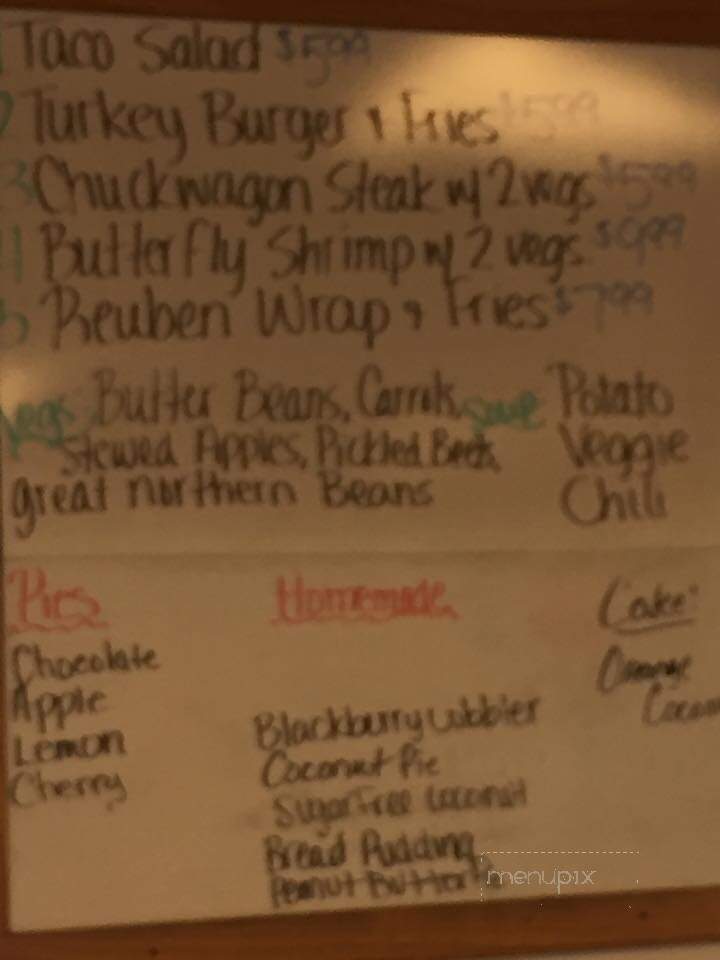 1 Taco Salad $5.99
2 Turkey Burger & Fries $5.99
3 Chuckwagon Steak w/ 2 vegs $5.99
4 Butterfly Shrimp w/ 2 vegs $9.99
5 Reuben Wrap & Fries $7.99
vegs Butter Beans, Carrots, Potato
Stewed Apples, Pickled Beets, Veggie
great northern Beans Chili
Pies Homemade Cake
Chocolate Orange
Apple Blackburry cobbler
Lemon Coconut Pie
Cherry Sugar Free Coconut
Bread Pudding
Peanut Butter
menupix